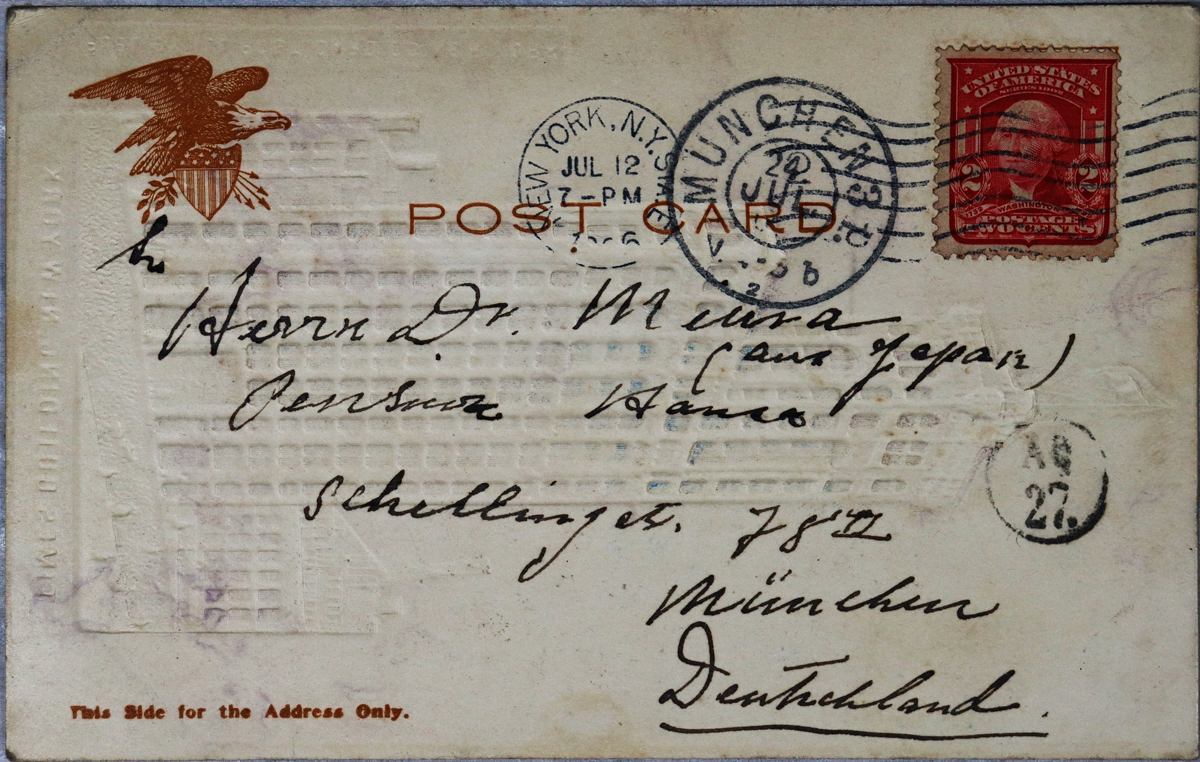 NEW YORK, N.Y. STA
JUL 12
7-PM
MÜNCHEN 3 P.
JUL
UNITED STATES
OF AMERICA
SERIES 1902
2 2
POSTAGE
TWO CENTS
POST CARD
Herrn Dr. Miura
(aus Japan)
Pension Hansa
Schellingst. 78 II
AG
27.
München
Deutschland.
This Side for the Address Only.